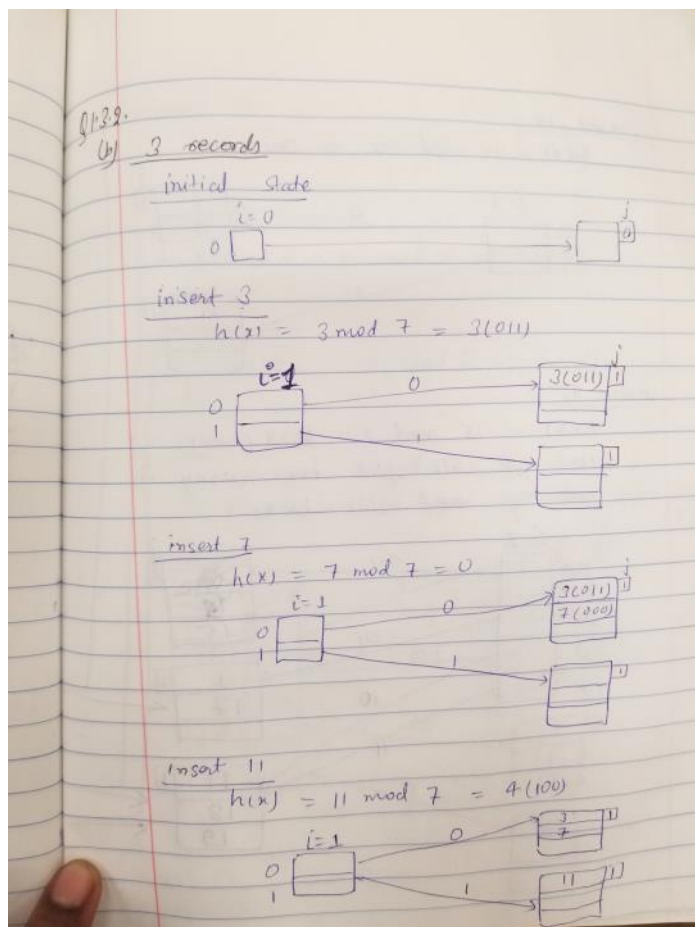 Q1.3.2.
(b) 3 records
initial state
i=0
j
0
0
insert 3
h(x) = 3 mod 7 = 3(011)
i=1
j
0
0
3(011)
1
1
1
1
insert 7
h(x) = 7 mod 7 = 0
i=1
j
0
0
3(011)
1
7(000)
1
1
1
insert 11
h(x) = 11 mod 7 = 4(100)
i=1
0
0
3
1
7
1
1
11
1